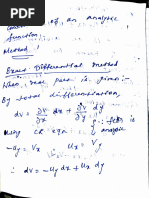 of an analytic
function :-
Method 1
Exact Differential method
When real part is given :-
By total differentiation,
dv = ∂v/∂x dx + ∂v/∂y dy
Using CR eqn : f is
analytic
-uy = Vx Ux = Vy
∴ dv = -uy dx + ux dy